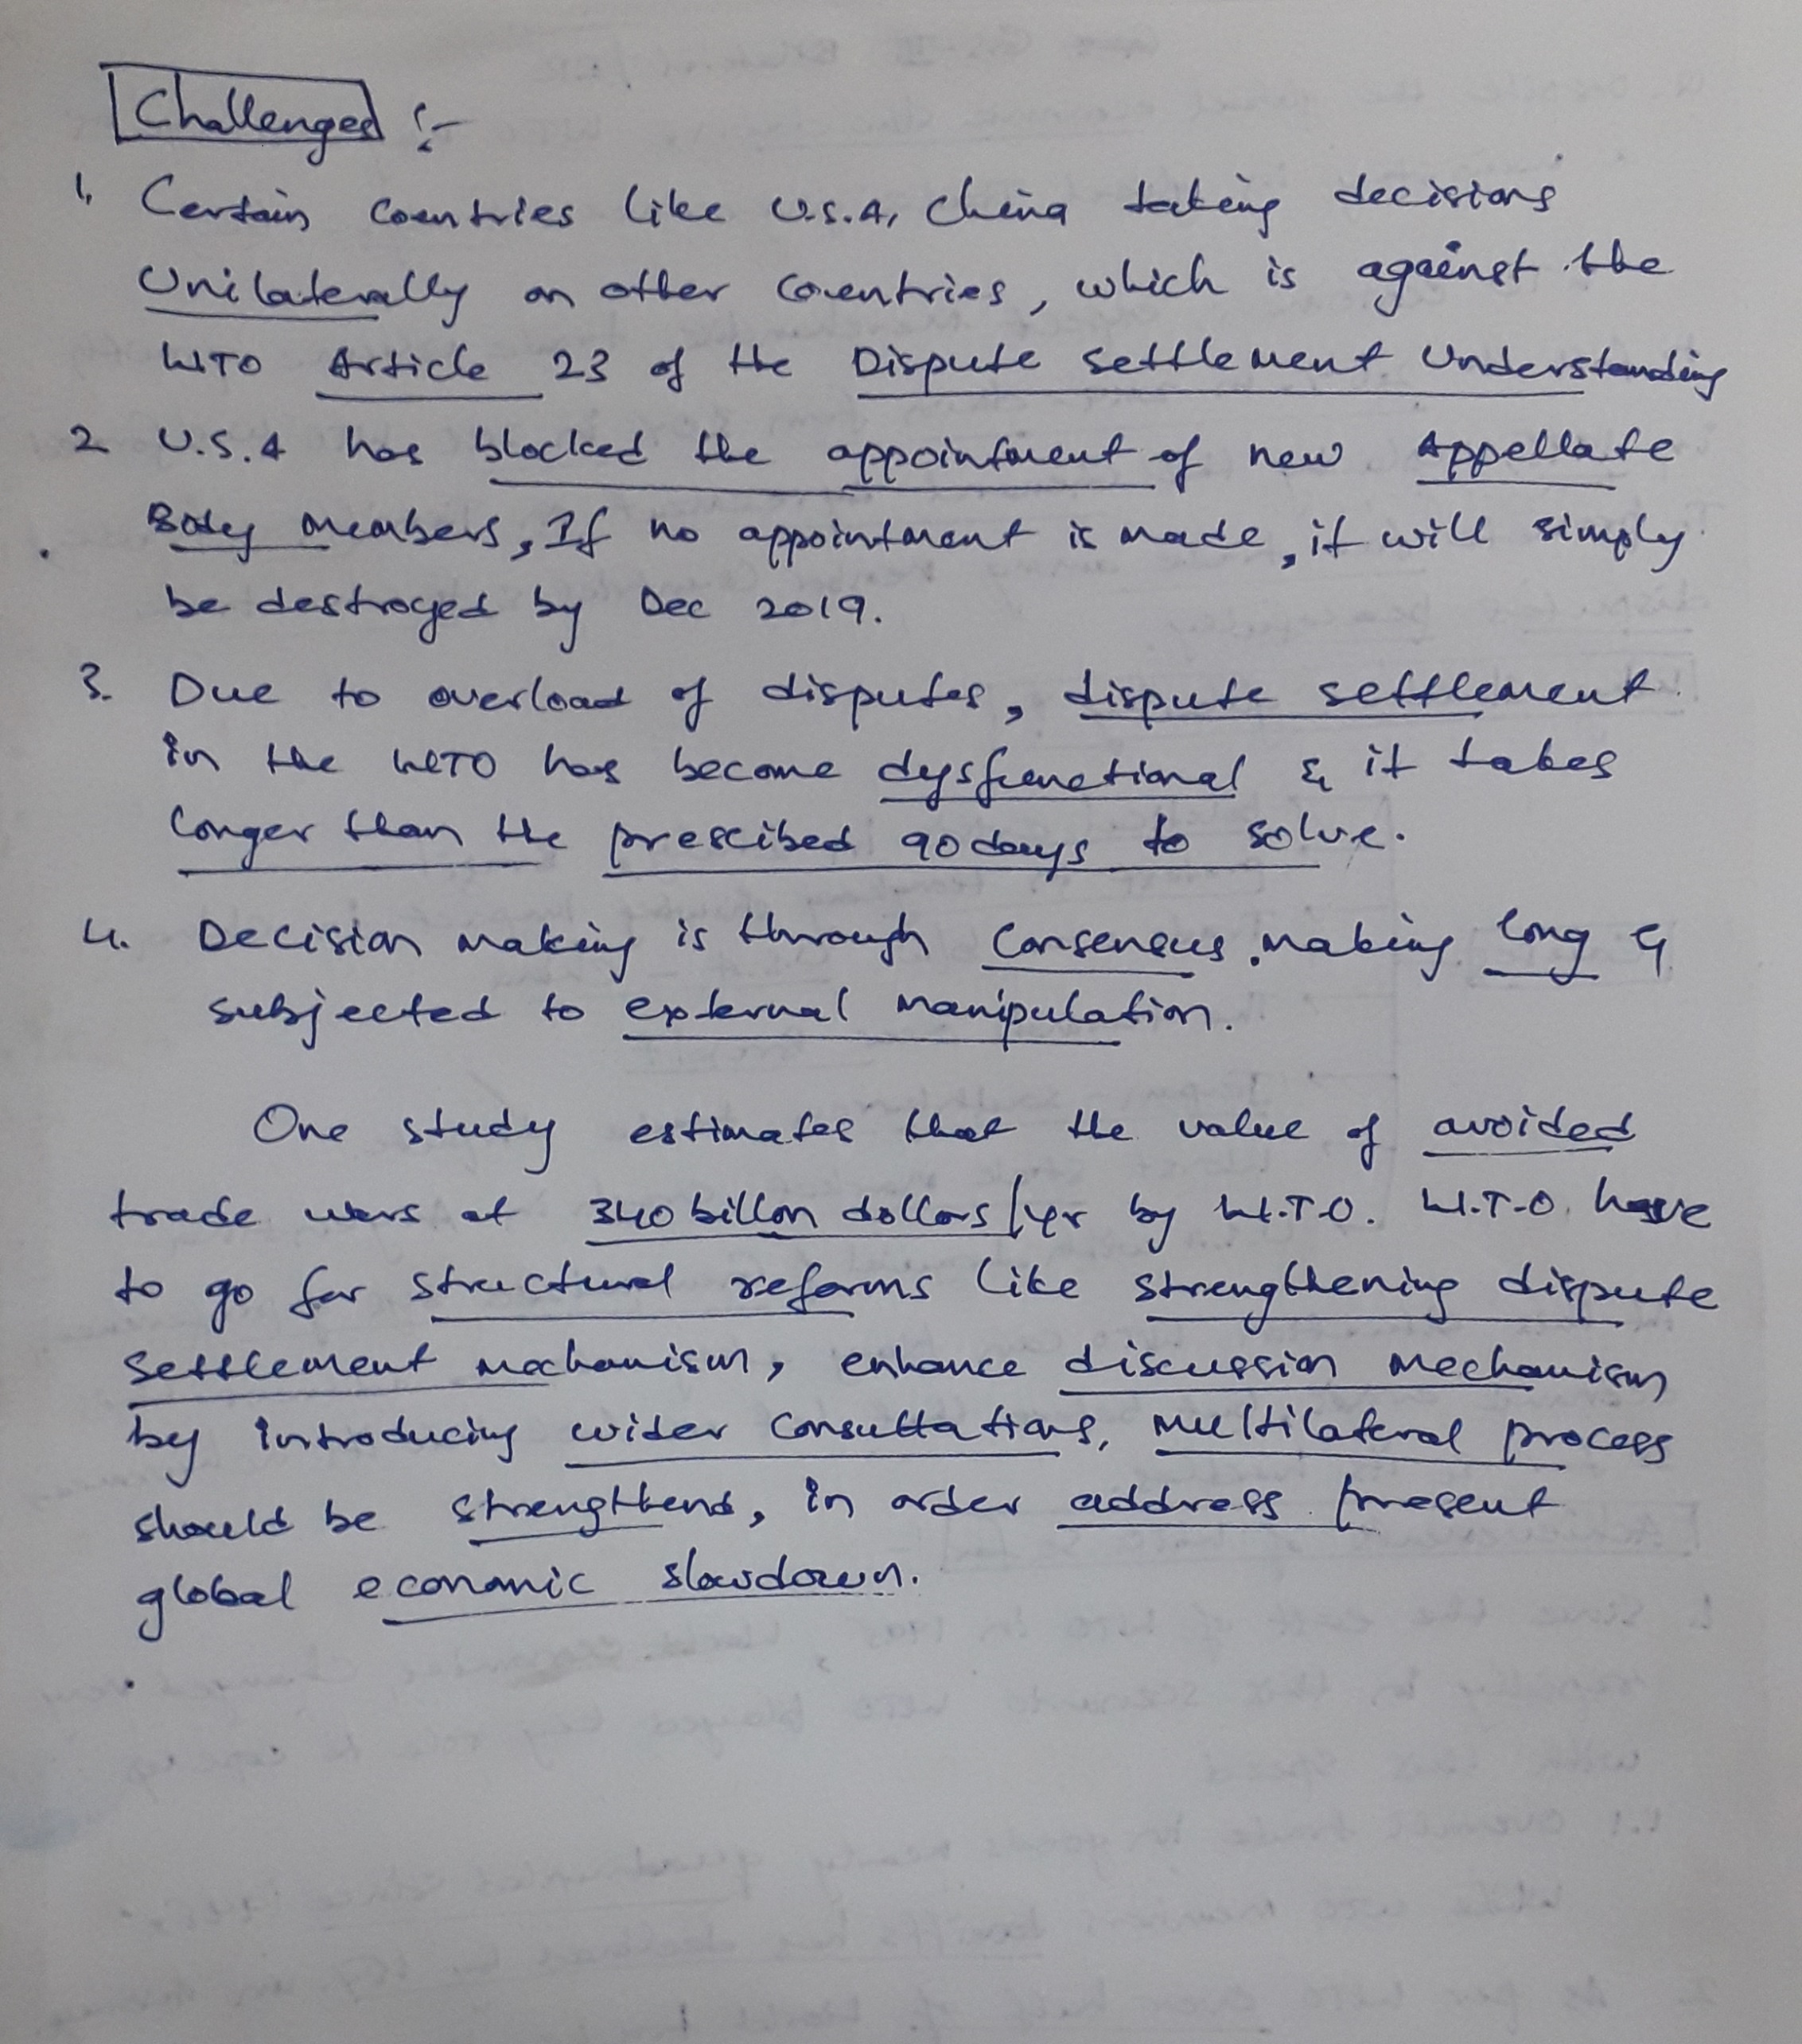 Challenges :-
1. Certain Countries like U.S.A, China taking decisions
Unilaterally on other Countries, which is against the
WTO Article 23 of the Dispute Settlement Understanding
2 U.S.A has blocked the appointment of new Appellate
Body members, If no appointment is made, it will simply
be destroyed by Dec 2019.
3. Due to overload of disputes, dispute settlement
in the WTO has become dysfunctional & it takes
longer than the prescibed 90 days to solve.
4. Decision making is through Consensus making long &
subjected to external manipulation.
One study estimates that the value of avoided
trade wars at 340 billon dollars/yr by W.T.O. W.T.O. have
to go for structural reforms like strengthening dispute
settlement mechanism, enhance discussion mechanism
by introducing wider Consultations, Multilateral process
should be strengthend, in order address present
global economic slowdown.